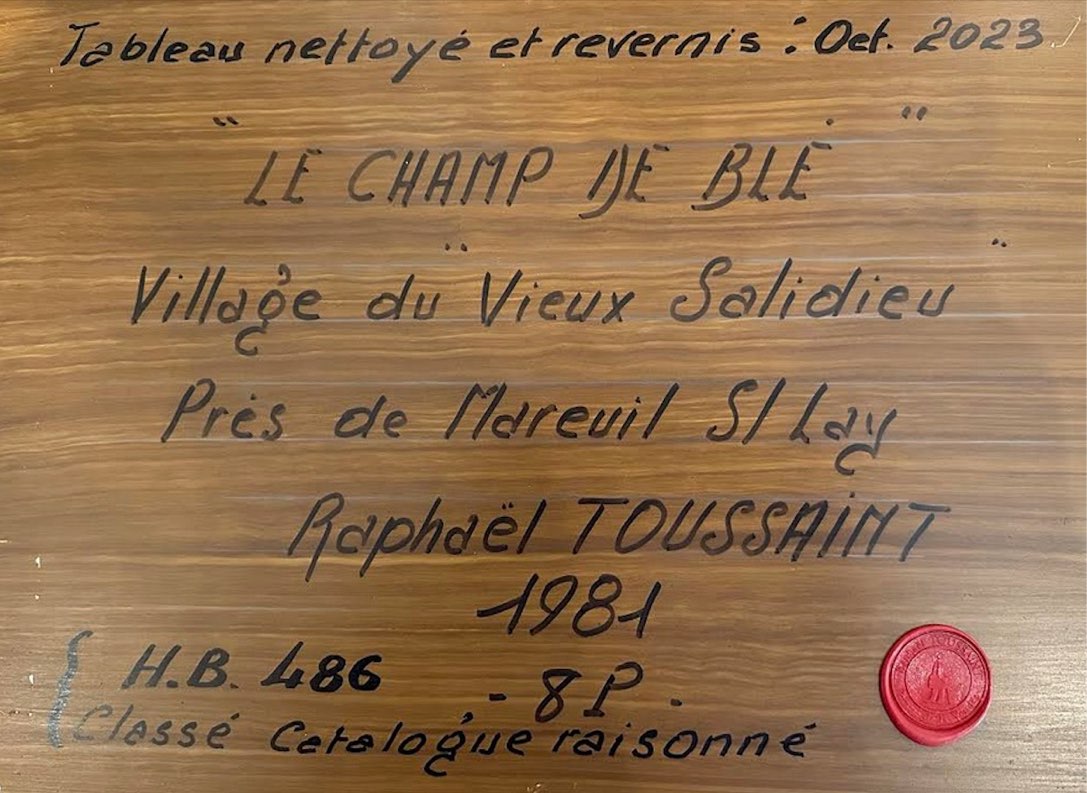 Tableau nettoyé et revernis : Oct. 2023.
"LE CHAMP DE BLÉ"
Village du "Vieux Salidieu"
Près de Mareuil S/ Lay
Raphaël TOUSSAINT
1981
H.B. 486 - 8P -
Classé Catalogue raisonné